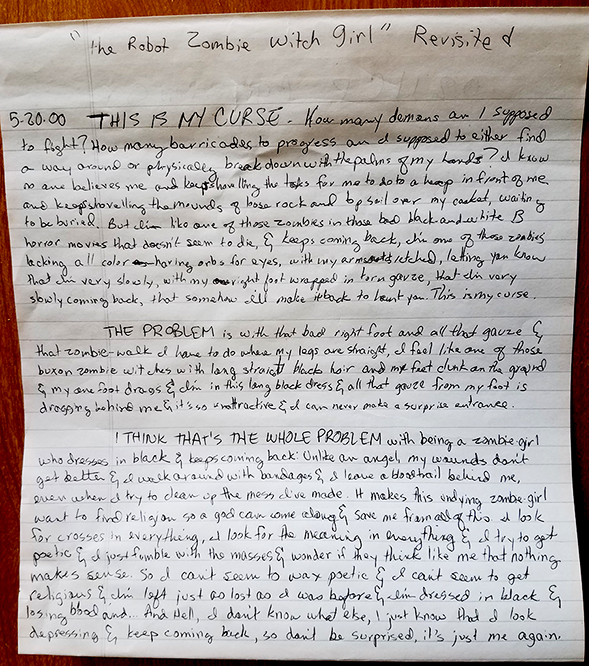 "the Robot Zombie Witch Girl" Revisited
5.20.00 THIS IS MY CURSE. How many demons am I supposed
to fight? How many barricades to progress am I supposed to either find
a way around or physically break down with the palms of my hands? I know
no one believes me and keeps shovelling the tasks for me to do to a heap in front of me
and keeps shovelling the mounds of base rock and top soil over my casket, waiting
to be buried. But I'm like one of those zombies in those bad black and white B
horror movies that doesn't seem to die, & keeps coming back, I'm one of those zombies
lacking all color having orbs for eyes, with my arms outstretched, letting you know
that I'm very slowly, with my right foot wrapped in torn gauze, that I'm very
slowly coming back, that somehow I'll make it back to haunt you. This is my curse.
THE PROBLEM is with that bad right foot and all that gauze &
that zombie-walk I have to do where my legs are straight, I feel like one of those
buxon zombie witches with long straight black hair and my feet clunk on the ground
& my one foot drags & I'm in this long black dress & all that gauze from my foot is
dragging behind me & it's so unattractive & I can never make a surprise entrance.
I THINK THAT'S THE WHOLE PROBLEM with being a zombie-girl
who dresses in black & keeps coming back: Unlike an angel, my wounds don't
get better & I walk around with bandages & I leave a blood trail behind me,
even when I try to clean up the mess I've made. It makes this undying zombie-girl
want to find religion so a god can come along & save me from all of this. I look
for crosses in everything, I look for the meaning in everything & I try to get
poetic & I just fumble with the masses & wonder if they think like me that nothing
makes sense. So I can't seem to wax poetic & I can't seem to get
religious & I'm left just as lost as I was before & I'm dressed in black &
losing blood and... And Hell, I don't know what else, I just know that I look
depressing & keep coming back, so don't be surprised, it's just me again.